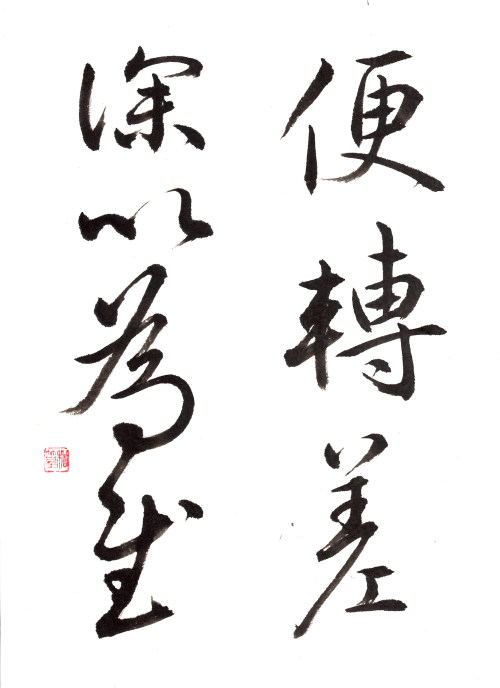 便轉差
深以為慰